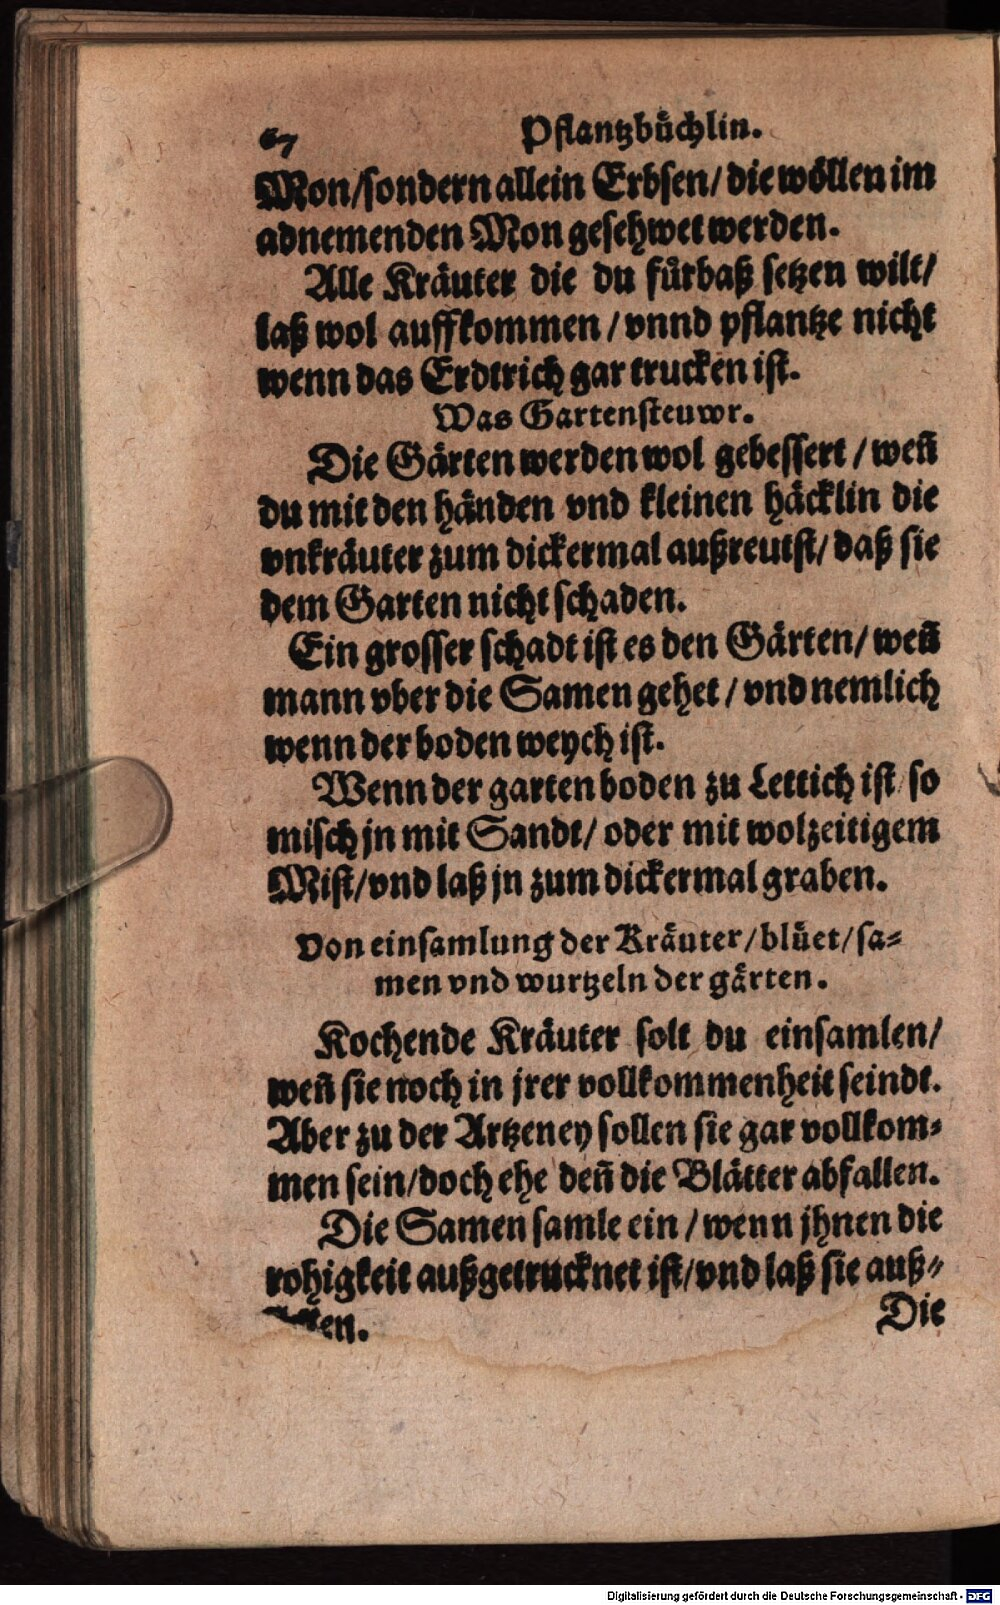 67 Pflantzbuͤchlin.
Mon/sondern allein Erbsen/die woͤllen im
abnemenden Mon gesehwet werden.
Alle Kraͤuter die du fuͤrbaß setzen wilt/
laß wol auffkommen/vnnd pflantze nicht
wenn das Erdtrich gar trucken ist.
Was Gartensteuwr.
Die Gaͤrten werden wol gebessert/weñ
du mit den haͤnden vnd kleinen haͤcklin die
vnkraͤuter zum dickermal außreutst/daß sie
dem Garten nicht schaden.
Ein grosser schadt ist es den Gaͤrten/weñ
mann vber die Samen gehet/vnd nemlich
wenn der boden weych ist.
Wenn der garten boden zu Lettich ist/so
misch jn mit Sandt/oder mit wolzeitigem
Mist/vnd laß jn zum dickermal graben.
Von einsamlung der Kraͤuter/bluͤet/sa⸗
men vnd wurtzeln der gaͤrten.
Kochende Kraͤuter solt du einsamlen/
weñ sie noch in jrer vollkommenheit seindt.
Aber zu der Artzeney sollen sie gar vollkom⸗
men sein/doch ehe deñ die Blaͤtter abfallen.
Die Samen samle ein/wenn jhnen die
rohigkeit außgetrucknet ist/vnd laß sie auß⸗
Die
Digitalisierung gefördert durch die Deutsche Forschungsgemeinschaft - DFG